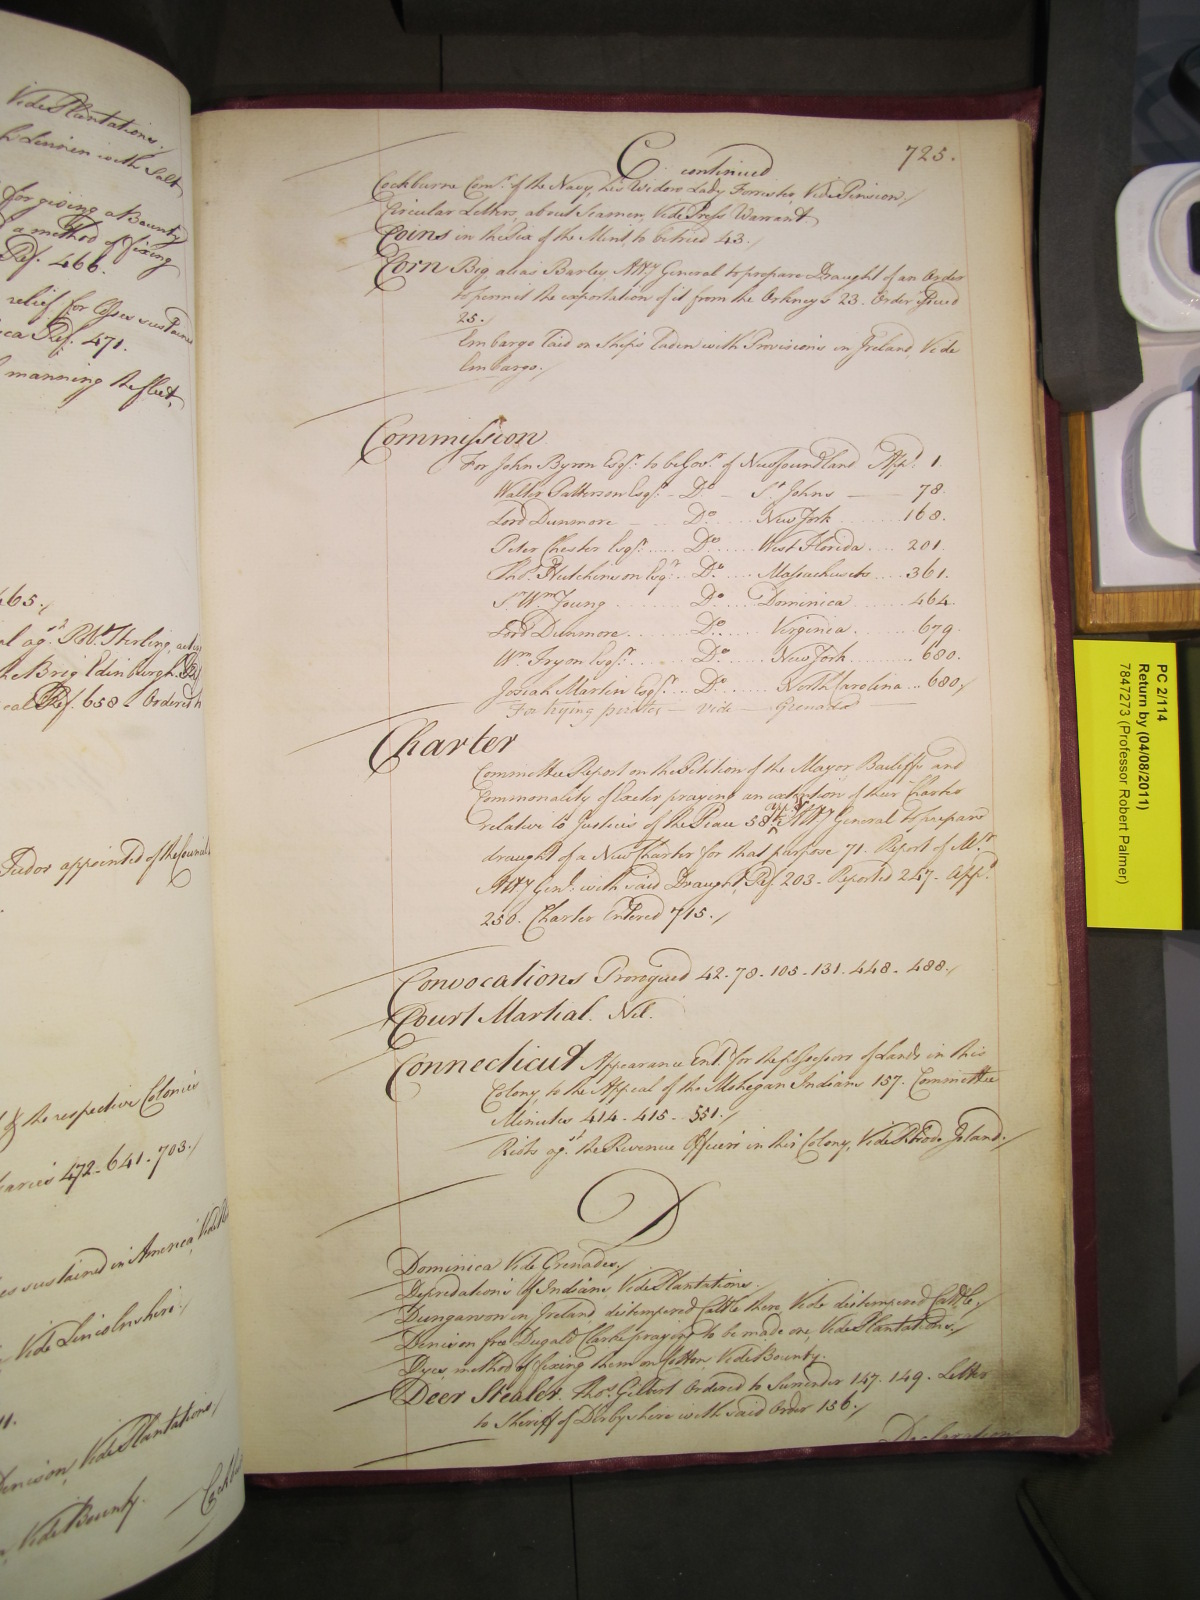 Vide Plantations./
Linnen with Salt
for giving a Bounty
a method of fixing
Ref. 466.
relief for Losses sustained
Ref. 471.
manning the fleet,
465./
Robt. Stirling,
the Brig Edinburgh.
Ref. 658 Ordered
Tudor appointed of the Council
& the respective Colonies
472 - 641 - 703./
sustained in America, Vide
Vide Lincolnshire./
Denison, Vide Plantations/
Vide Bounty.
725.
C. continued
Cockburne Comr. of the Navy, his Widow Lady Forrester, Vide Pension/
Circular Letters, about Seamen, Vide Press Warrants
Coins in the Pix of the Mint, to be tried 43./
Corn Big alias Barley Atty General to prepare Draught of an Order
to permit the exportation of it from the Orkneys 23. Order issued
25./
Embargo laid on Ships laden with Provisions in Ireland, Vide
Embargo./
Commission
For John Byron Esqr. to be Govr. of Newfoundland Appd. 1.
Walter Patterson Esqr. - Do. - St. Johns — 78.
Lord Dunmore - Do. New York 168.
Peter Chester Esqr. Do. West Florida 201.
Thos. Hutchinson Esqr. Do. Massachusets 361.
Sr. Wm. Young Do. Dominica 464.
Lord Dunmore Do. Virginia 679.
Wm. Tryon Esqr. Do. New York 680.
Josiah Martin Esqr. Do. North Carolina 680/
For trying pirates — vide — Grenada —
Charter
Committee Report on the Petition of the Mayor Bailiffs and
Commonality of Exeter praying an extention of their Charter
relative to Justices of the Peace 58 Atty General to prepare
draught of a New Charter for that purpose 71. Report of Mr.
Atty Genl. with said Draught, Ref. 203 - Reported 247 - Appd.
250. Charter Entered 715./
Convocations Prorogued 42 - 78 - 105 - 131 - 448 - 488./
Court Martial. Nil.
Connecticut Appearance Ent. for the possessors of Lands in this
Colony, to the Appeal of the Mohegan Indians 157. Committee
Minutes 414 - 415 - 551./
Riots agst. the Revenue Officers in this Colony, Vide Rhode Island./
D
Dominica Vide Grenades/
Depredations of Indians Vide Plantations./
Dungarvon in Ireland, distempered Cattle there, Vide distempered Cattle,/
Denison free Dugald Clarke praying to be made one, Vide Plantations,/
Dyes, method of fixing them on Cotton, Vide Bounty.
Deer Stealer. Thos. Gilbert Ordered to Surrender 147. 149. Letter
to Sheriff of Derbyshire with said Order 156./
Declaration
PC 2/114
Return by (04/08/2011)
7847273 (Professor Robert Palmer)